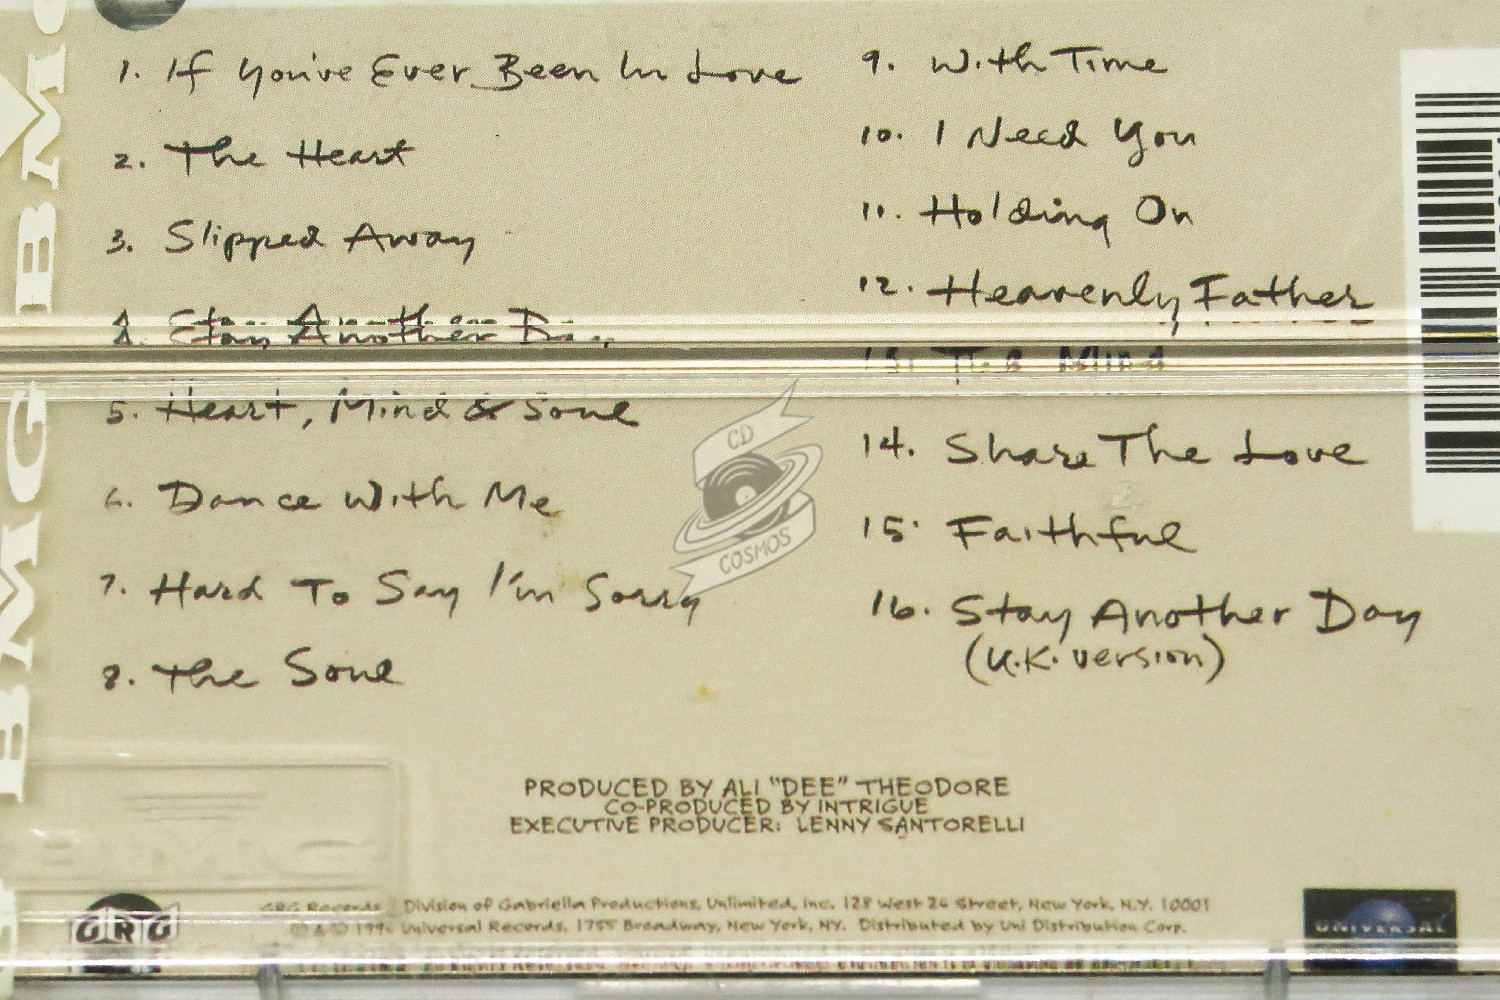 1. If You've Ever Been In Love
2. The Heart
3. Slipped Away
4. Stay Another
5. Heart, Mind & Soul
6. Dance With Me
7. Hard To Say I'm Sorry
8. The Soul
9. With Time
10. I Need You
11. Holding On
12. Heavenly Father
13. The Mind
14. Share The Love
15. Faithful
16. Stay Another Day
(U.K. version)
CD
COSMOS
PRODUCED BY ALI "DEE" THEODORE
CO-PRODUCED BY INTRIGUE
EXECUTIVE PRODUCER: LENNY SANTORELLI
GRG Records Division of Gabriella Productions, Unlimited, Inc. 128 West 26 Street, New York, N.Y. 10001
1996 Universal Records, 1755 Broadway, New York, NY. Distributed by Uni Distribution Corp.
GRG
UNIVERSAL
BMG
BMG
BMG